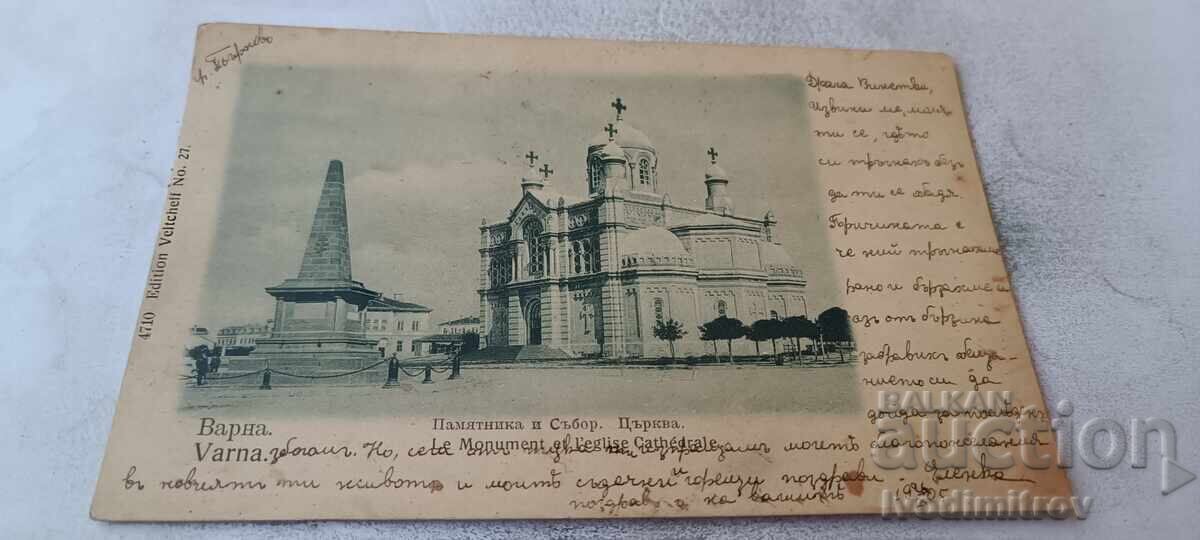 гр. Търново
4710 Edition Veltcheff No. 27.
Драга
Извини ме, моля
ти се, гдѣто
си тръгнахъ безъ
да ти се обадя.
Причината е
че ний тръгнахме
рано и бързахме и
азъ отъ бързина
забравихъ обеща-
нието си да
дойда за
Варна.
Памятника и Събор. Църква.
Varna.
Le Monument et l'eglise Cathédrale.
збогомъ. Но, сега отъ тука ти изпращамъ моитѣ благопожелания
въ новиятъ ти животъ и моитѣ сърдечни и горещи поздрави.
поздрав на вашитѣ
BALKAN
auction
lvodimitrov